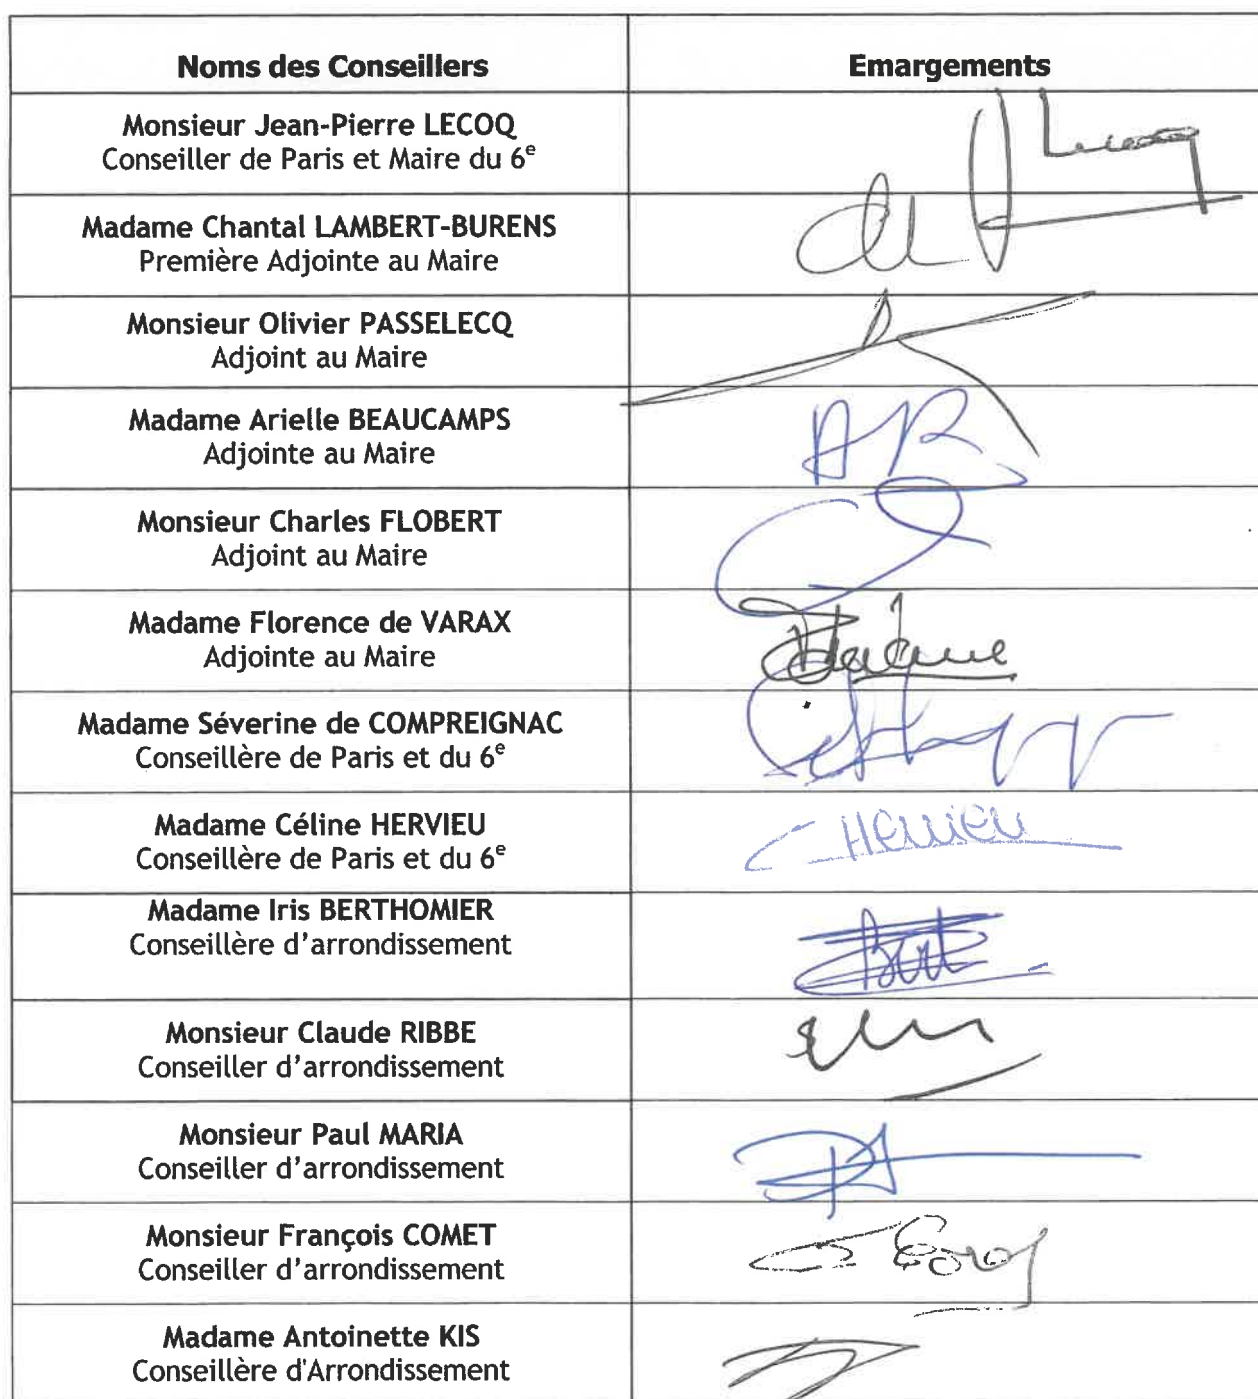 Noms des Conseillers
Emargements
Monsieur Jean-Pierre LECOQ
Conseiller de Paris et Maire du 6e
Lecoq
Madame Chantal LAMBERT-BURENS
Première Adjointe au Maire
Monsieur Olivier PASSELECQ
Adjoint au Maire
Madame Arielle BEAUCAMPS
Adjointe au Maire
AB
Monsieur Charles FLOBERT
Adjoint au Maire
Madame Florence de VARAX
Adjointe au Maire
Madame Séverine de COMPREIGNAC
Conseillère de Paris et du 6e
Madame Céline HERVIEU
Conseillère de Paris et du 6e
C HERVIEU
Madame Iris BERTHOMIER
Conseillère d'arrondissement
Monsieur Claude RIBBE
Conseiller d'arrondissement
Monsieur Paul MARIA
Conseiller d'arrondissement
Monsieur François COMET
Conseiller d'arrondissement
Madame Antoinette KIS
Conseillère d'Arrondissement